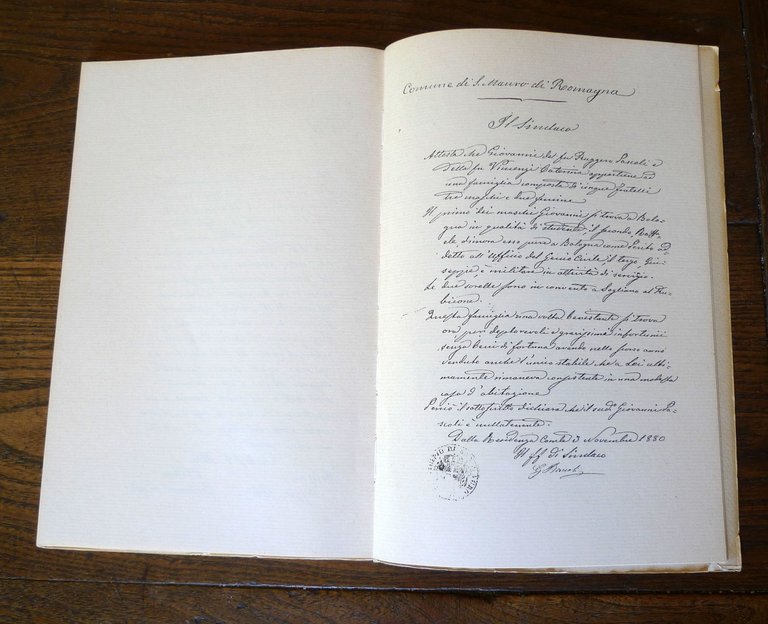 Comune di S. Mauro di Romagna
Il Sindaco
Attesta che Giovanni del fu Ruggero Pascoli e
della fu Vincenzi Caterina appartiene ad
una famiglia composta di cinque fratelli
tre maschi e due femine
Il primo dei maschi Giovanni si trova a Bolo-
gna in qualità di studente, il secondo Raffae-
le, dimora esso pure a Bologna come Scrito ad-
detto all'Ufficio del Genio Civile, il terzo Giu-
seppe, è militare in attività di servizio.
Le due sorelle sono in convento a Sogliano al Ru-
bicone.
Questa famiglia una volta benestante si trova
ora per deplorevoli e gravissimi infortunii
senza beni di fortuna avendo nello scorso anno
venduto anche l'unico stabile che a Lei ulti-
mamente rimaneva consistente in una modesta
casa d'abitazione
Perciò il sottoscritto dichiara che il sudo Giovanni Pa-
scoli è nullatenente.
Dalla Residenza Comle 3 Novembre 1880
Il ff di Sindaco